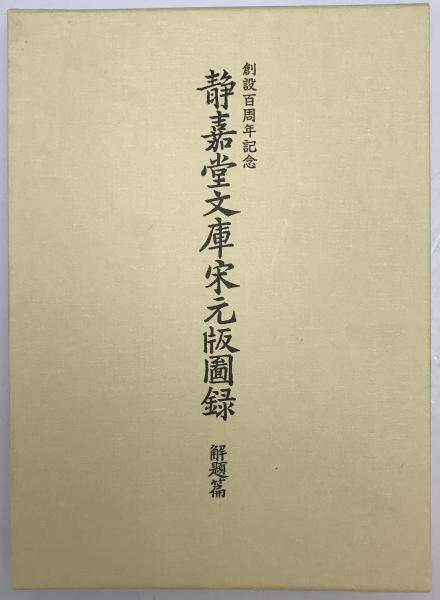 創設百周年記念
靜嘉堂文庫宋元版圖録
解題篇